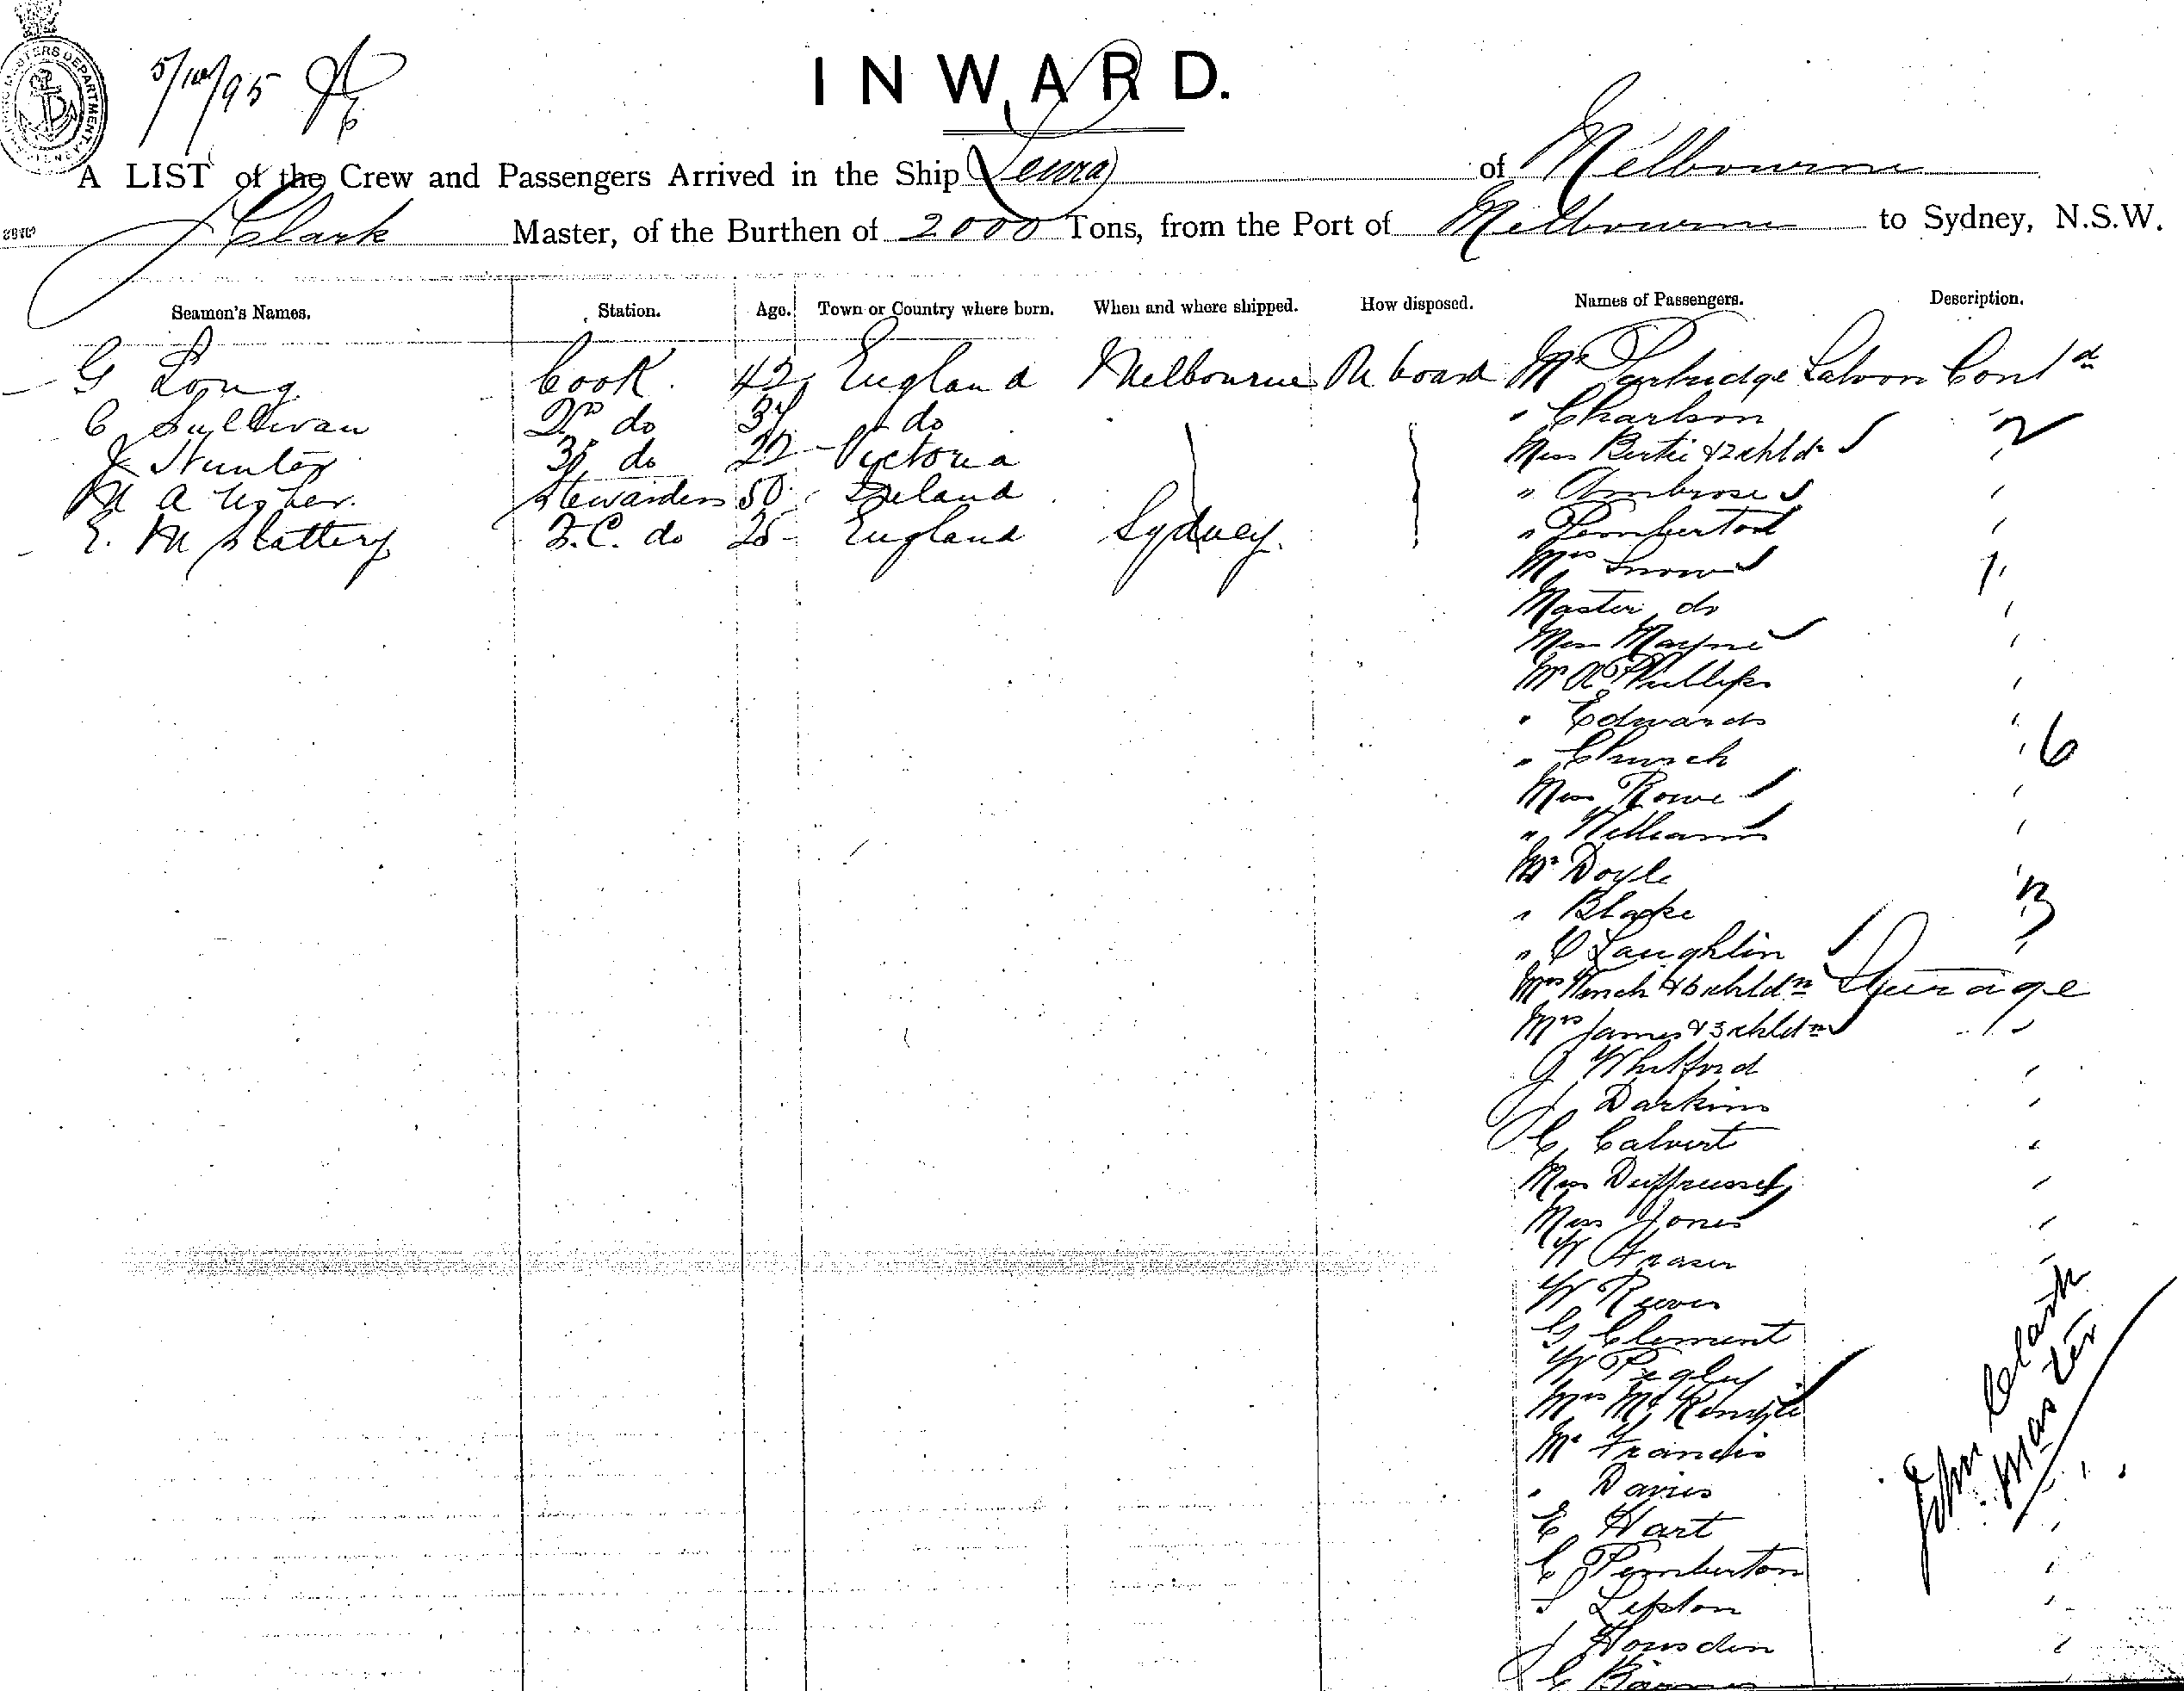 5/10/95
INWARD.
A LIST of the Crew and Passengers Arrived in the Ship Leura of Melbourne
J Clark Master, of the Burthen of 2000 Tons, from the Port of Melbourne to Sydney, N.S.W.
Seamen's Names. Station. Age. Town or Country where born. When and where shipped. How disposed. Names of Passengers. Description.
G Long Cook. 42 England Melbourne On board Mr Partridge Saloon Contd
C Sullivan 2nd do 34 do " Charlson 2
J Hunter 3rd do 22 Victoria Miss Bertie & 2 chldn
M A Usher. Stewardess 50 Ireland " Ambrose
E. M Slattery F.C. do 25 England Sydney. " Pemberton
Mrs Snow 1
Master do
Miss Mayne
Mr A Phillips
" Edwards
" Church 6
Miss Rowe
" Williams
Mr Doyle
" Blake 3
" O Laughlin
Mrs Wench & 6 chldn Steerage
Mrs James & 3 chldn
J Whitford
J Darkins
C Calvert
Miss
Miss Jones
W Fraser
W Reeves
G Clement
W Pegley
Mrs McKenzie
Mr Francis
" Davies
E Hart
C Pemberton
S Lipton
J Housden
John Clark
Master